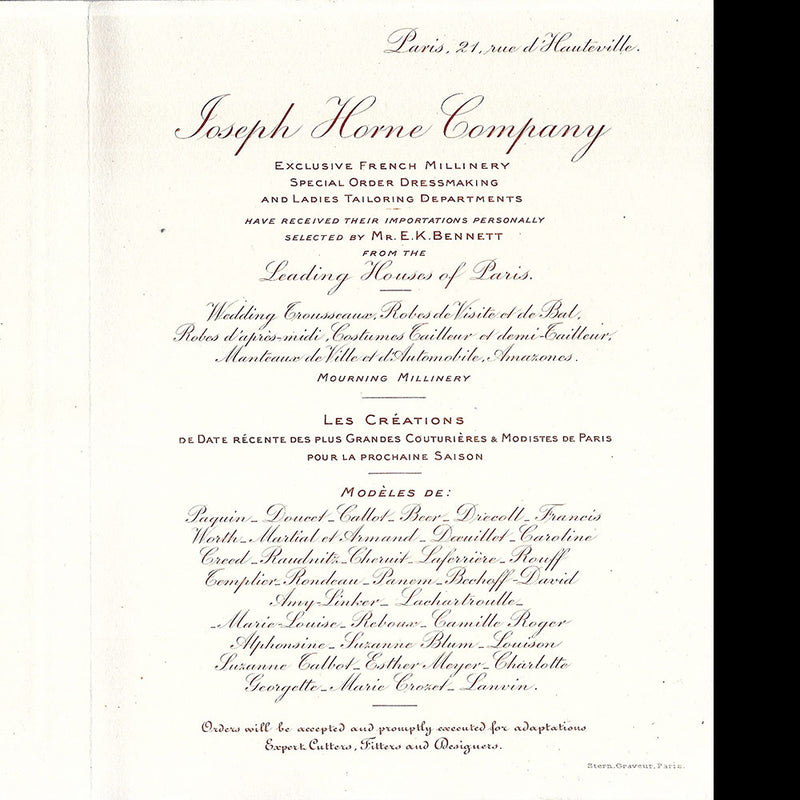 Paris, 21, rue d'Hauteville.
Joseph Horne Company
Exclusive French Millinery
Special Order Dressmaking
and Ladies Tailoring Departments
have received their importations personally
selected by Mr. E.K. Bennett
from the
Leading Houses of Paris.
Wedding Trousseaux, Robes de Visite et de Bal,
Robes d'après-midi, Costumes Tailleur et demi-Tailleur,
Manteaux de Ville et d'Automobile, Amazones.
Mourning Millinery
Les Créations
de Date récente des plus Grandes Couturières & Modistes de Paris
pour la prochaine Saison
Modèles de:
Paquin_ Doucet_ Callot_ Beer_ Drecoll_ Francis
Worth_ Martial et Armand_ Dœuillet_ Caroline
Creed_ Raudnitz_ Cheruit_ Laferrière_ Rouff
Templier_ Rondeau_ Panem_ Bechoff-David
Amy-Linker_ Lachartroulle_
_Marie-Louise_ Reboux_ Camille Roger
Alphonsine_ Suzanne Blum_ Louison
Suzanne Talbot_ Esther Meyer_ Charlotte
Georgette_ Marie Crozet_ Lanvin.
Orders will be accepted and promptly executed for adaptations
Expert Cutters, Fitters and Designers.
Stern, Graveur, Paris.